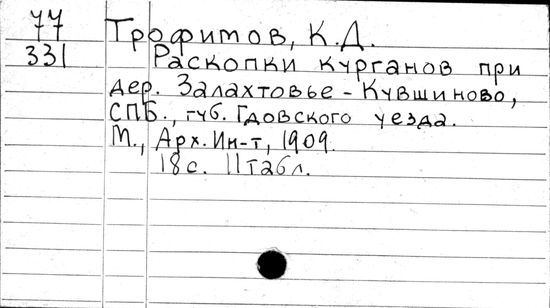 77 Трофимов, К.Д.
331 Раскопки курганов при
дер. Залахтовье - Кувшиново,
СПБ., губ. Гдовского уезда.
М., Арх. Ин-т, 1909.
18 с. 11 табл.